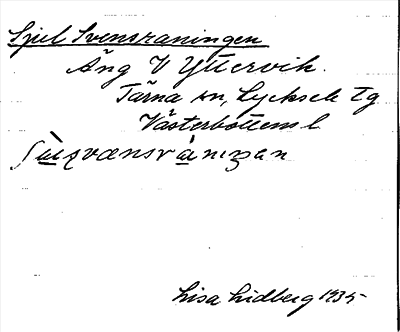 Sjul Svensraningen
Äng V Yttervik.
Tärna sn, Lycksele tg
Västerbottens l
Lisa Lidberg 1935